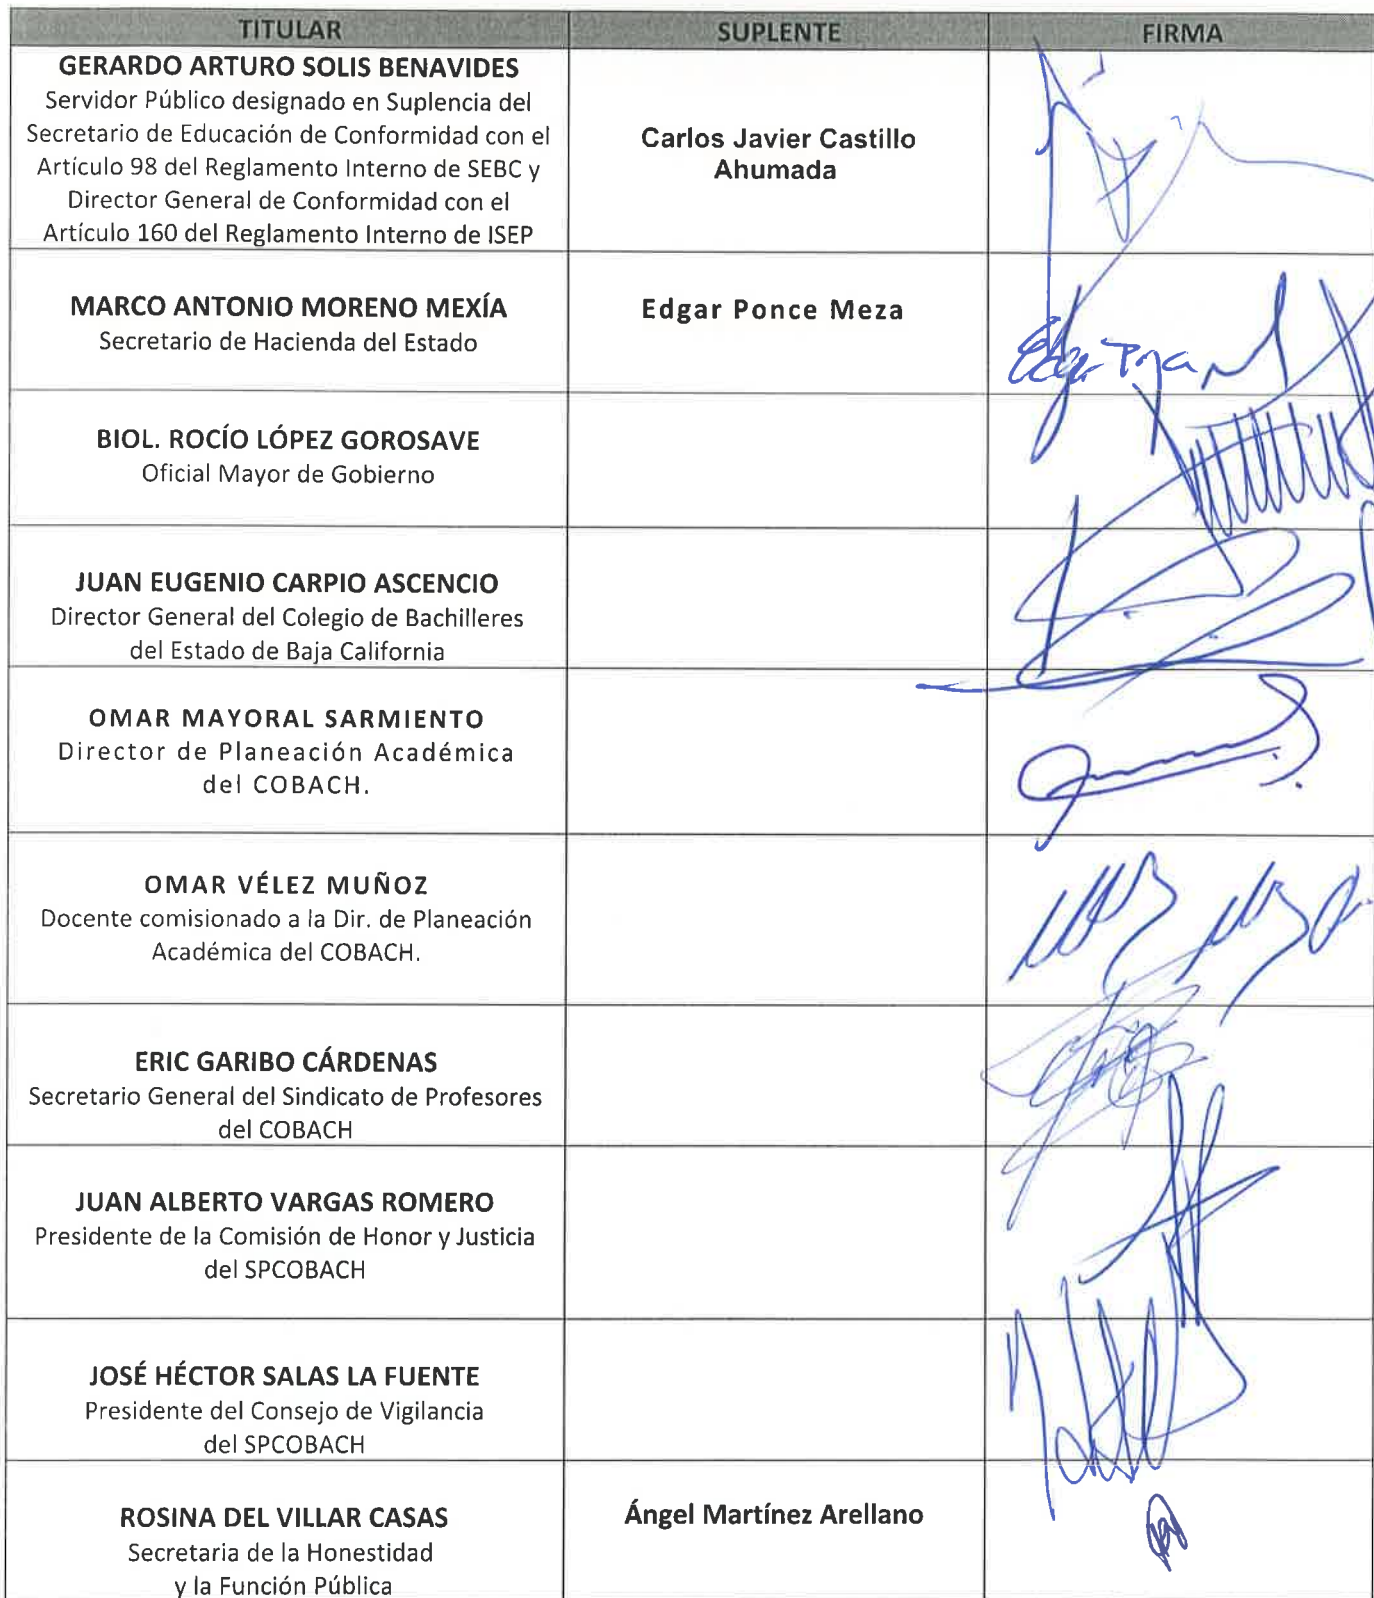 TITULAR SUPLENTE FIRMA
GERARDO ARTURO SOLIS BENAVIDES
Servidor Público designado en Suplencia del
Secretario de Educación de Conformidad con el
Artículo 98 del Reglamento Interno de SEBC y
Director General de Conformidad con el
Artículo 160 del Reglamento Interno de ISEP
Carlos Javier Castillo
Ahumada
MARCO ANTONIO MORENO MEXÍA
Secretario de Hacienda del Estado
Edgar Ponce Meza
BIOL. ROCÍO LÓPEZ GOROSAVE
Oficial Mayor de Gobierno
JUAN EUGENIO CARPIO ASCENCIO
Director General del Colegio de Bachilleres
del Estado de Baja California
OMAR MAYORAL SARMIENTO
Director de Planeación Académica
del COBACH.
OMAR VÉLEZ MUÑOZ
Docente comisionado a la Dir. de Planeación
Académica del COBACH.
ERIC GARIBO CÁRDENAS
Secretario General del Sindicato de Profesores
del COBACH
JUAN ALBERTO VARGAS ROMERO
Presidente de la Comisión de Honor y Justicia
del SPCOBACH
JOSÉ HÉCTOR SALAS LA FUENTE
Presidente del Consejo de Vigilancia
del SPCOBACH
ROSINA DEL VILLAR CASAS
Secretaria de la Honestidad
y la Función Pública
Ángel Martínez Arellano